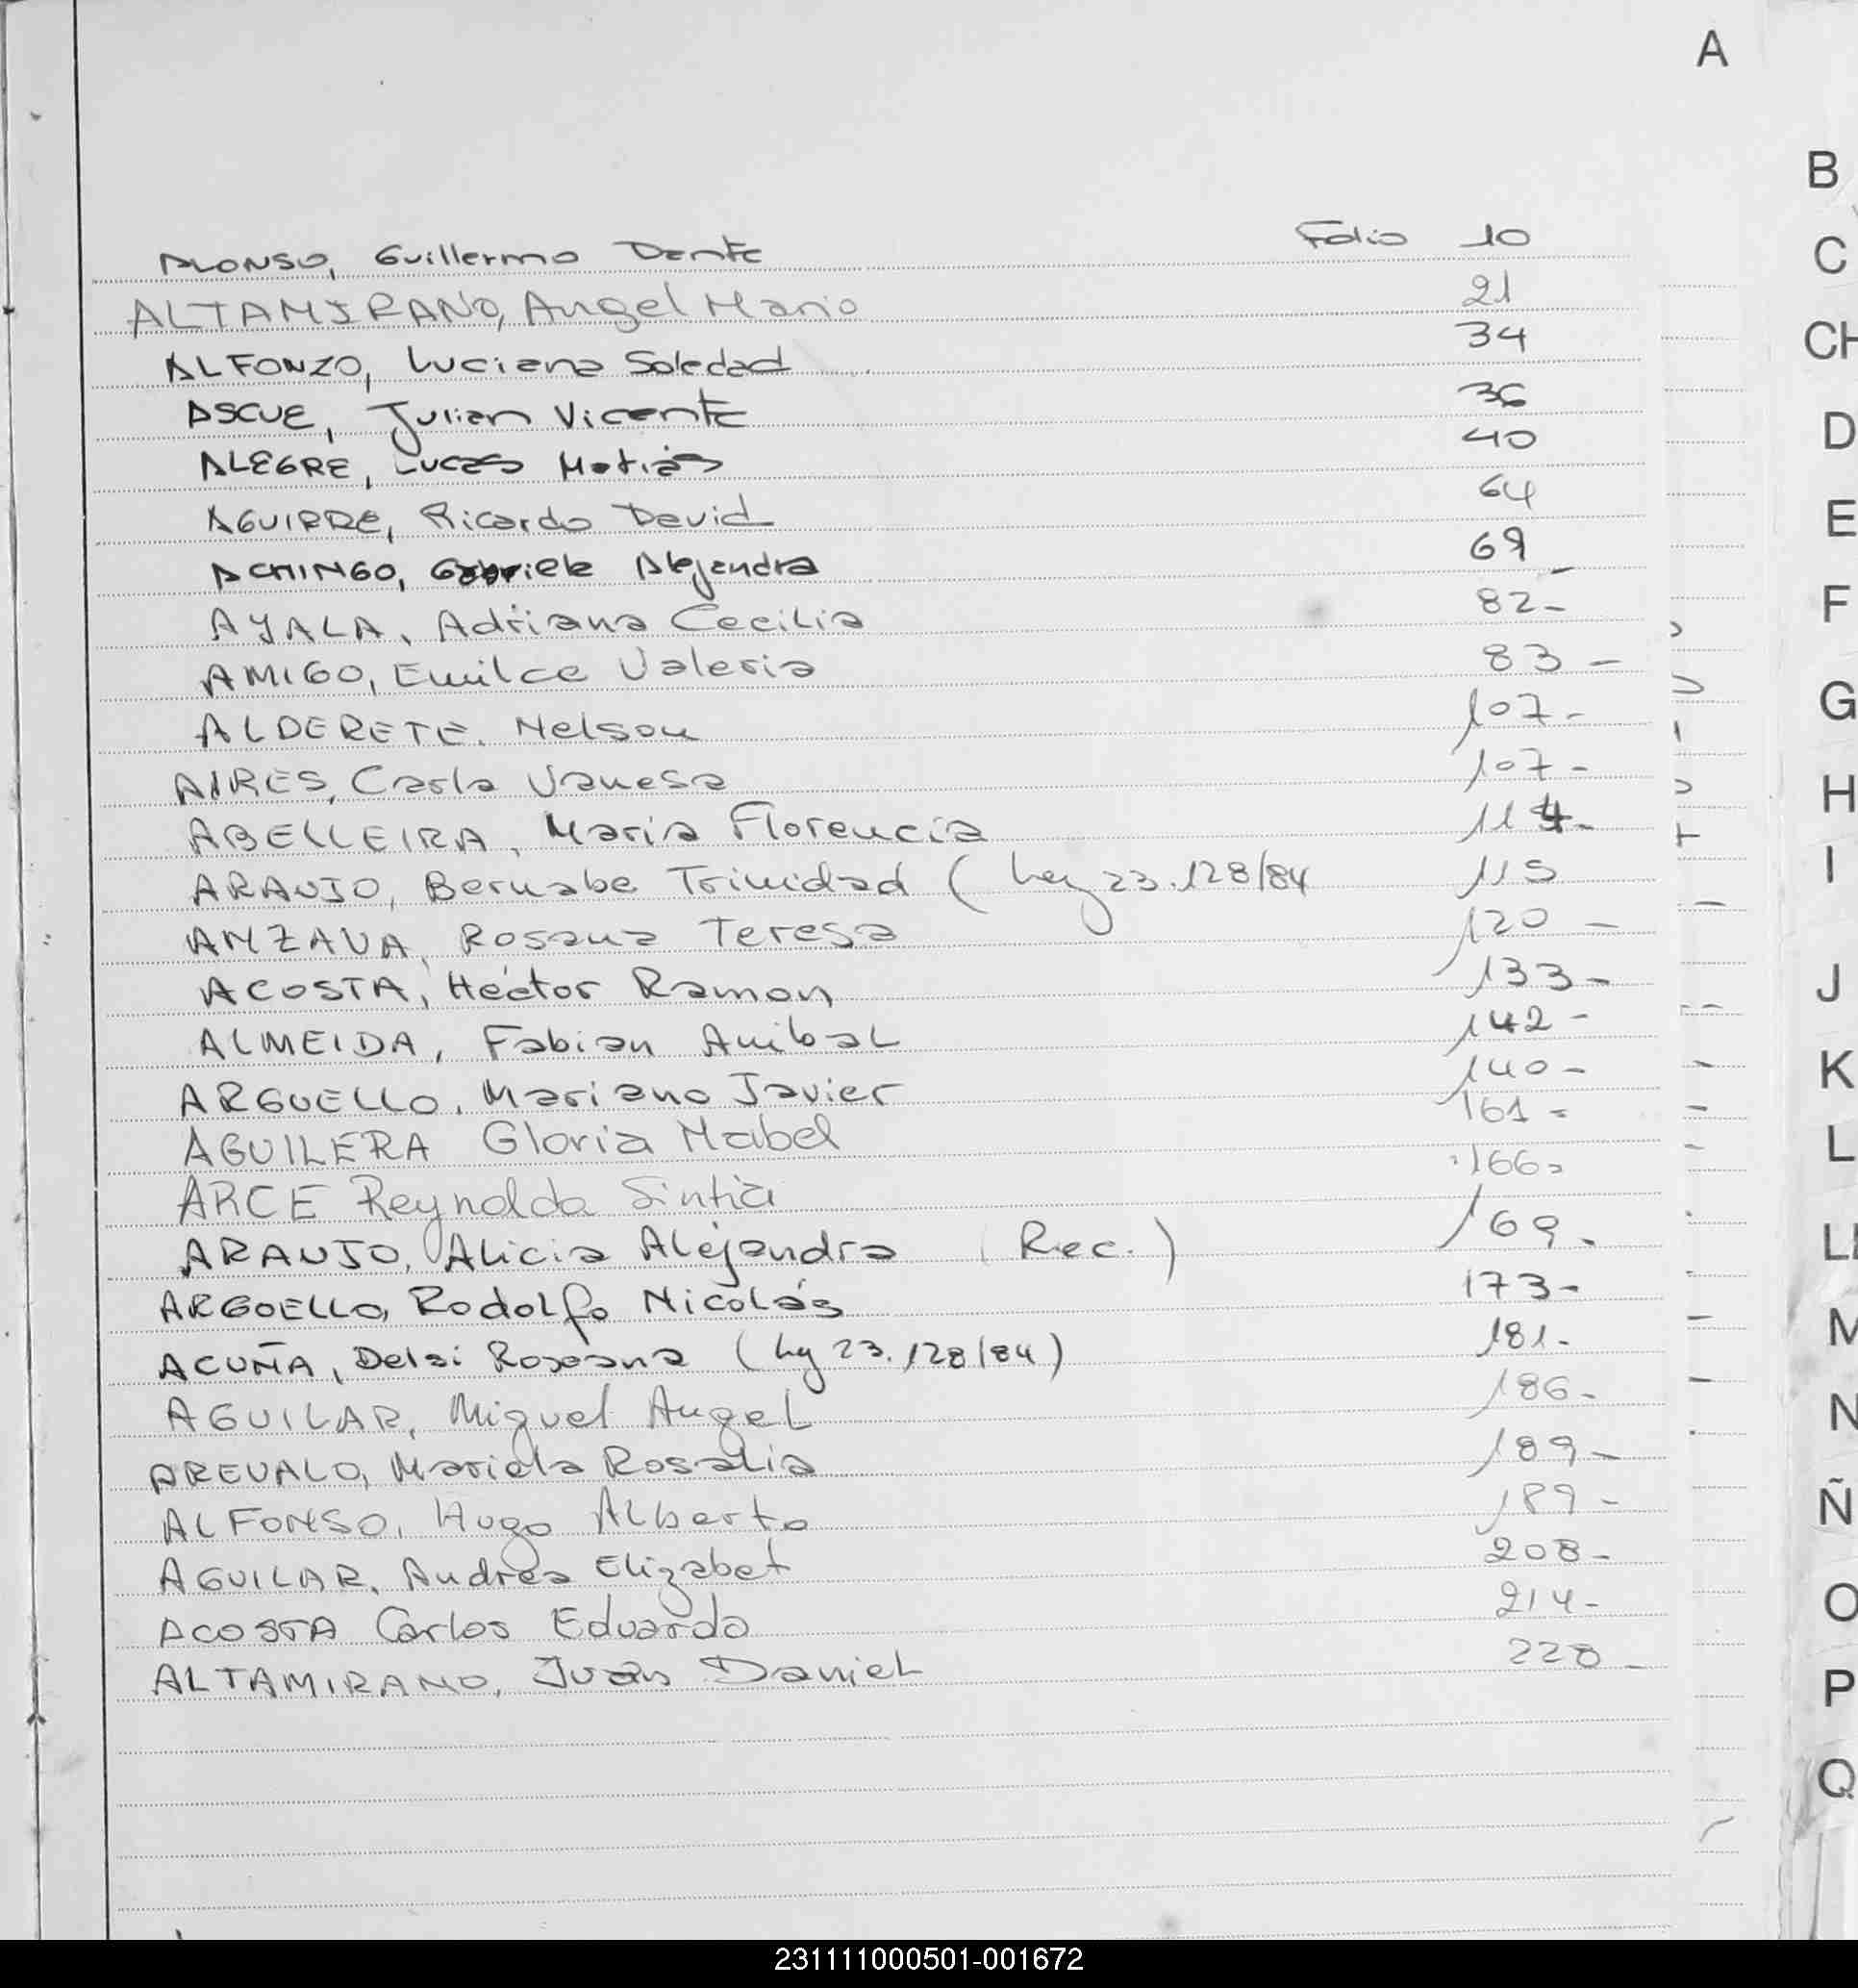 A
ALONSO, Guillermo Dante Folio 10
ALTAMIRANO, Angel Mario 21
ALFONZO, Luciana Soledad 34
ASCUE, Julian Vicente 36
ALEGRE, Lucas Matias 40
AGUIRRE, Ricardo David 64
ACHINGO, Gabriela Alejandra 69
AYALA, Adriana Cecilia 82-
AMIGO, Emilce Valeria 83-
ALDERETE. Nelson 107-
AIRES, Carla Vanesa 107-
ABELLEIRA, Maria Florencia 114-
ARAUJO, Bernabe Trinidad ( Ley 23.128/84 115
ANZAUA, Rosana Teresa 120-
ACOSTA, Héctor Ramon 133-
ALMEIDA, Fabian Anibal 142-
ARGUELLO, Mariano Javier 140-
AGUILERA Gloria Mabel 161-
ARCE Reynalda Sintia 166-
ARAUJO, Alicia Alejandra (Rec.) 169.
ARGUELLO, Rodolfo Nicolás 173-
ACUÑA, Delsi Rossana (Ley 23.128/84) 181-
AGUILAR, Miguel Angel 186-
AREVALO, Mariela Rosalia 189-
ALFONSO, Hugo Alberto 189-
AGUILAR, Andrea Elizabet 208-
ACOSTA Carlos Eduardo 214-
ALTAMIRANO, Juan Daniel 220-
B
C
CH
D
E
F
G
H
I
J
K
L
LL
M
N
Ñ
O
P
Q
231111000501-001672